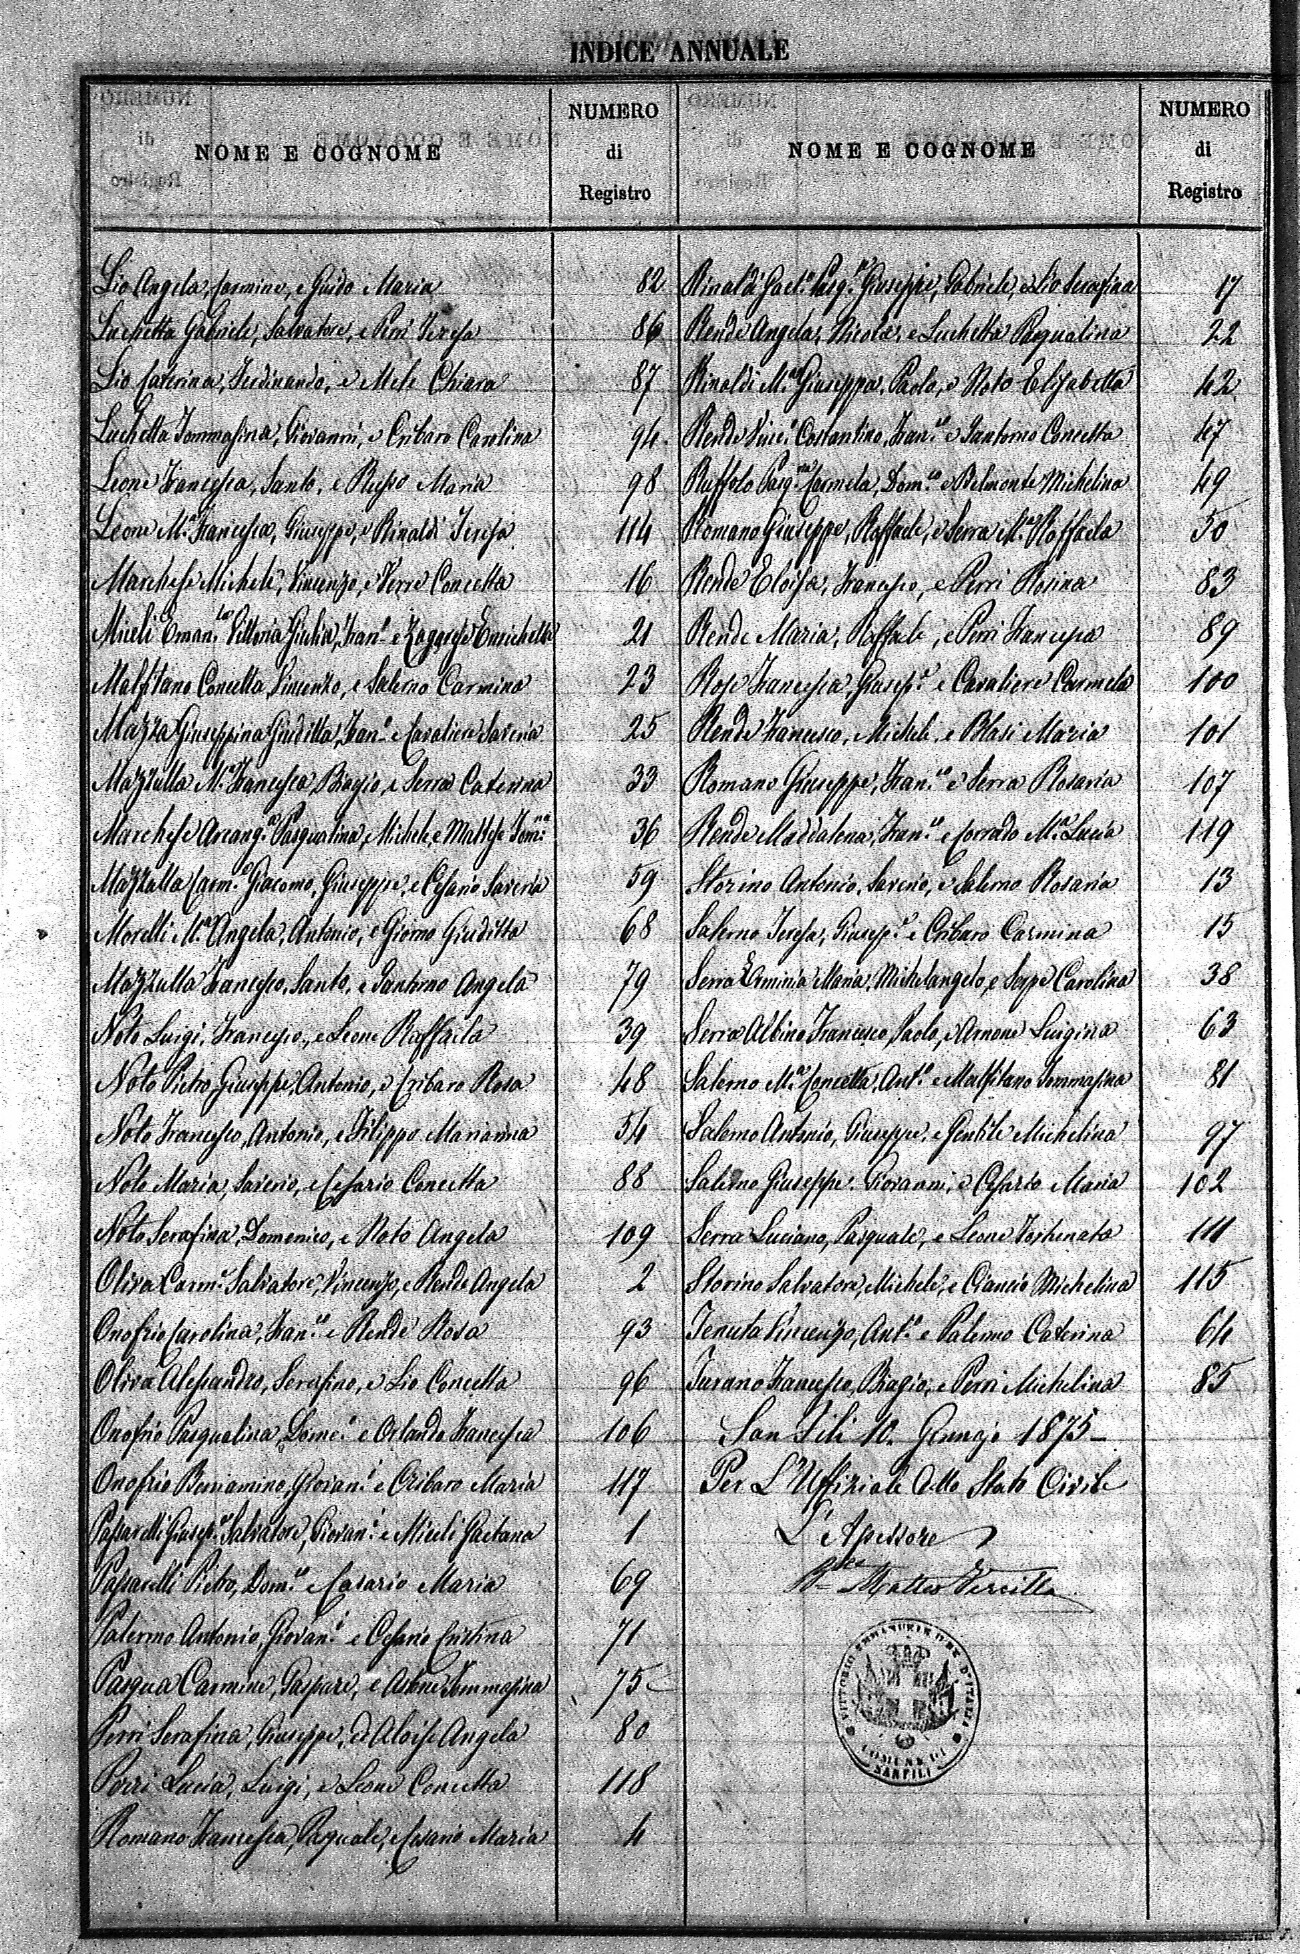 INDICE ANNUALE
NOME E COGNOME
NUMERO
di
Registro
Lio Angela, Carmine, e Guido Maria 82
Luchetta Gabriele, Salvatore, e Perri Teresa 86
Lio Caterina, Ferdinando, e Mele Chiara 87
Luchetta Tommasina, Giovanni, e Cribaro Carolina 94
Leone Francesca, Santo, e Russo Maria 98
Leone Mª Francesca, Giuseppe, e Rinaldi Teresa 114
Marchese Michele, Vincenzo, e Verre Concetta 16
Miceli Eman.la Vittoria Giulia, Fran.o e Zagarese Enrichetta 21
Malfitano Concetta, Vincenzo, e Salerno Carmina 23
Mazza Giuseppina Giuditta, Fran.o e Cavaliere Saveria 25
Mazzulla Mª Francesca, Biagio, e Serra Caterina 33
Marchese Arcang.a Pasqualina, Michele, e Maltese Tom.na 36
Mazzulla Carm.o Giacomo, Giuseppe, e Cesario Saveria 59
Morelli Mª Angela, Antonio, e Giorno Giuditta 68
Mazzulla Francesco, Santo, e Santorno Angela 79
Noto Luigi, Francesco, e Leone Raffaela 39
Noto Pietro Giuseppe, Antonio, e Cribaro Rosa 48
Noto Francesco, Antonio, e Filippo Marianna 54
Noto Maria, Saverio, e Cesario Concetta 88
Noto Serafina, Domenico, e Noto Angela 109
Oliva Carm.o Salvatore, Vincenzo, e Rende Angela 2
Onofrio Carolina, Fran.co e Rende Rosa 93
Oliva Alessandro, Serafino, e Lio Concetta 96
Onofrio Pasqualina, Dome.o e Orlando Francesca 106
Onofrio Beniamino, Giovan.i e Cribaro Maria 117
Passarelli Giusep.e Salvatore, Giovan.i e Miceli Gaetana 1
Passarelli Pietro, Dom.co e Casario Maria 69
Palermo Antonio, Giovan.i e Cesario Cristina 71
Pasqua Carmine, Gaspare, e Tommasina 75
Perri Serafina, Giuseppe, e d'Aloise Angela 80
Perri Lucia, Luigi, e Leone Concetta 118
Romano Francesca, Pasquale, e Cesario Maria 4
NOME E COGNOME
NUMERO
di
Registro
Rinaldi Gaet.o Pasq.le Giuseppe, Gabriele, e Lio Serafina 17
Rende Angela, Nicola, e Luchetta Pasqualina 22
Rinaldi Mª Giuseppa, Paolo, e Noto Elisabetta 42
Rende Vinc.o Costantino, Fran.co e Santorno Concetta 47
Ruffolo Pasq.na Carmela, Dom.co e Belmonte Michelina 49
Romano Giuseppe, Raffaele, e Serra Mª Raffaela 50
Rende Eloisa, Francesco, e Perri Rosina 83
Rende Maria, Raffaele, e Perri Francesca 89
Rose Francesca, Giusep.e e Cavaliere Carmela 100
Rende Francesco, Michele, e Blasi Maria 101
Romano Giuseppe, Fran.co e Serra Rosaria 107
Rende Maddalena, Fran.co e Corrado Mª Lucia 119
Storino Antonio, Saverio, e Salerno Rosaria 13
Salerno Teresa, Giusep.e e Cribaro Carmina 15
Serra Erminia Maria, Michelangelo, e Serpe Carolina 38
Serra Albino Francesco, Paolo, e Arnone Luigina 63
Salerno Mª Concetta, Ant.o e Malfitano Tommasina 81
Salerno Antonio, Giuseppe, e Gentile Michelina 97
Salerno Giuseppe, Giovanni, e Maria 102
Serra Luciano, Pasquale, e Leone Fortunata 111
Storino Salvatore, Michele, e Ciancio Michelina 115
Tenuta Vincenzo, Ant.o e Palermo Caterina 64
Turano Francesco, Biagio, e Perri Michelina 85
San Fili 10. Gennajo 1875
Per L'Uffiziale dello Stato Civile
L'Assessore
Matteo Vercilla
VITTORIO EMMANUELE II RE D'ITALIA
COMUNE DI
SANFILI